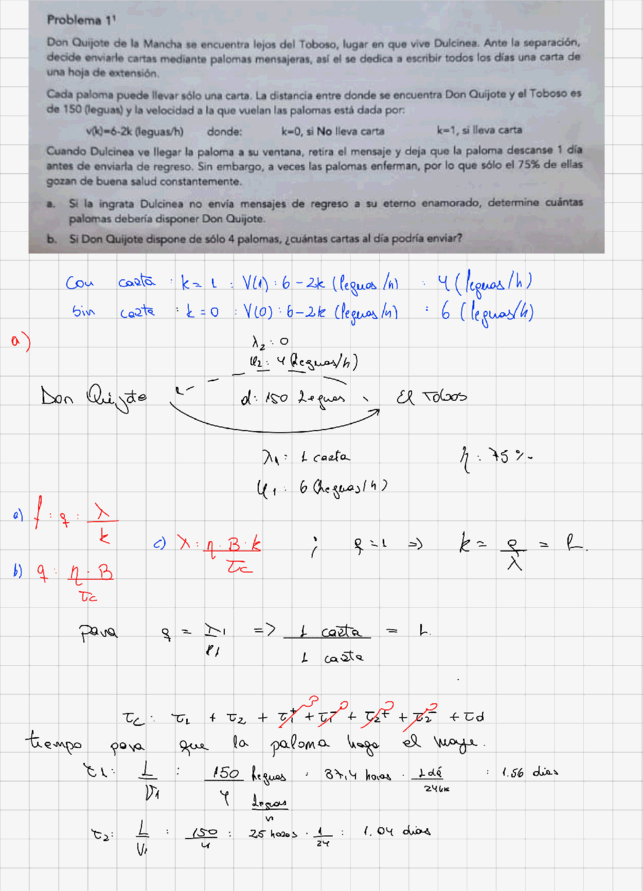 Problema 1¹
Don Quijote de la Mancha se encuentra lejos del Toboso, lugar en que vive Dulcinea. Ante la separación,
decide enviarle cartas mediante palomas mensajeras, así el se dedica a escribir todos los días una carta de
una hoja de extensión.
Cada paloma puede llevar sólo una carta. La distancia entre donde se encuentra Don Quijote y el Toboso es
de 150 (leguas) y la velocidad a la que vuelan las palomas está dada por:
v(k)=6-2k (leguas/h) donde: k=0, si No lleva carta k=1, si lleva carta
Cuando Dulcinea ve llegar la paloma a su ventana, retira el mensaje y deja que la paloma descanse 1 día
antes de enviarla de regreso. Sin embargo, a veces las palomas enferman, por lo que sólo el 75% de ellas
gozan de buena salud constantemente.
a. Si la ingrata Dulcinea no envía mensajes de regreso a su eterno enamorado, determine cuántas
palomas debería disponer Don Quijote.
b. Si Don Quijote dispone de sólo 4 palomas, ¿cuántas cartas al día podría enviar?
Con carta : k = 1 : V(1) : 6 - 2k (leguas/h) : 4 (leguas/h)
Sin carta : k = 0 : V(0) : 6 - 2k (leguas/h) : 6 (leguas/h)
a)
λ2 : 0
φ2 : 4 (leguas/h)
Don Quijote d : 150 Leguas El Tobos
λ1 : 1 carta η : 75 %
φ1 : 6 (leguas/h)
a) f : q : λ / k
c) λ : η · B · k / τc ; q = 1 => k = q / λ = 1.
b) q : η · B / τc
para q = λ1 / k1 => 1 carta / 1 carta = 1
τc : τ1 + τ2 + τ1⁺ + τ1⁻ + τ2⁺ + τ2⁻ + τd
tiempo para que la paloma haga el viaje.
τ1 : L / V1 : 150 leguas / 4 leguas/h : 37,4 horas · 1 día / 24 hr : 1.56 días
τ2 : L / V1 : 150 / 4 : 25 horas · 1 / 24 : 1.04 días